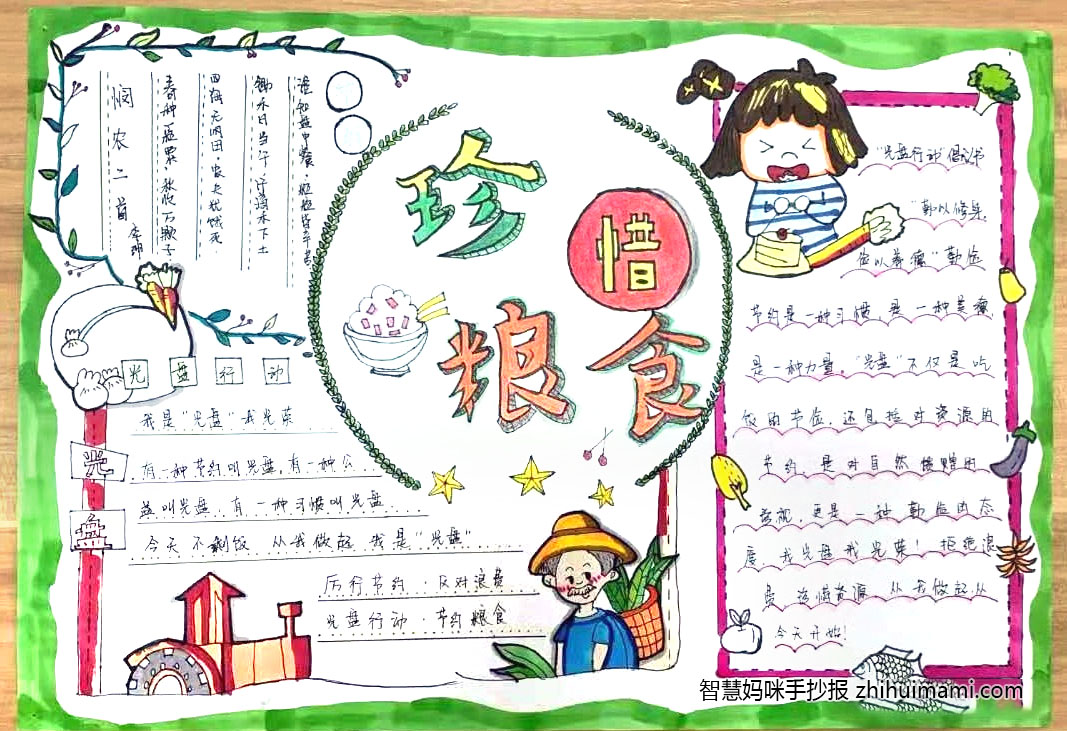 悯农二首 李绅
春种一粒粟,秋收万颗子
四海无闲田,农夫犹饿死
锄禾日当午,汗滴禾下土
谁知盘中餐,粒粒皆辛苦
珍
惜
粮食
光盘行动
光盘
我是"光盘"我光荣
有一种节约叫光盘,有一种公
益叫光盘,有一种习惯叫光盘
今天不剩饭 从我做起 我是"光盘"
厉行节约·反对浪费
光盘行动·节约粮食
"光盘行动"倡议书
"勤以修身,
俭以养德"勤俭
节约是一种习惯,是一种美德
是一种力量。"光盘"不仅是吃
饭的节俭,还包括对资源的
节约,是对自然馈赠的
珍视,更是一种勤俭的态
度,我光盘我光荣!拒绝浪
费,珍惜资源,从我做起从
今天开始!
智慧妈咪手抄报 zhihuimami.com